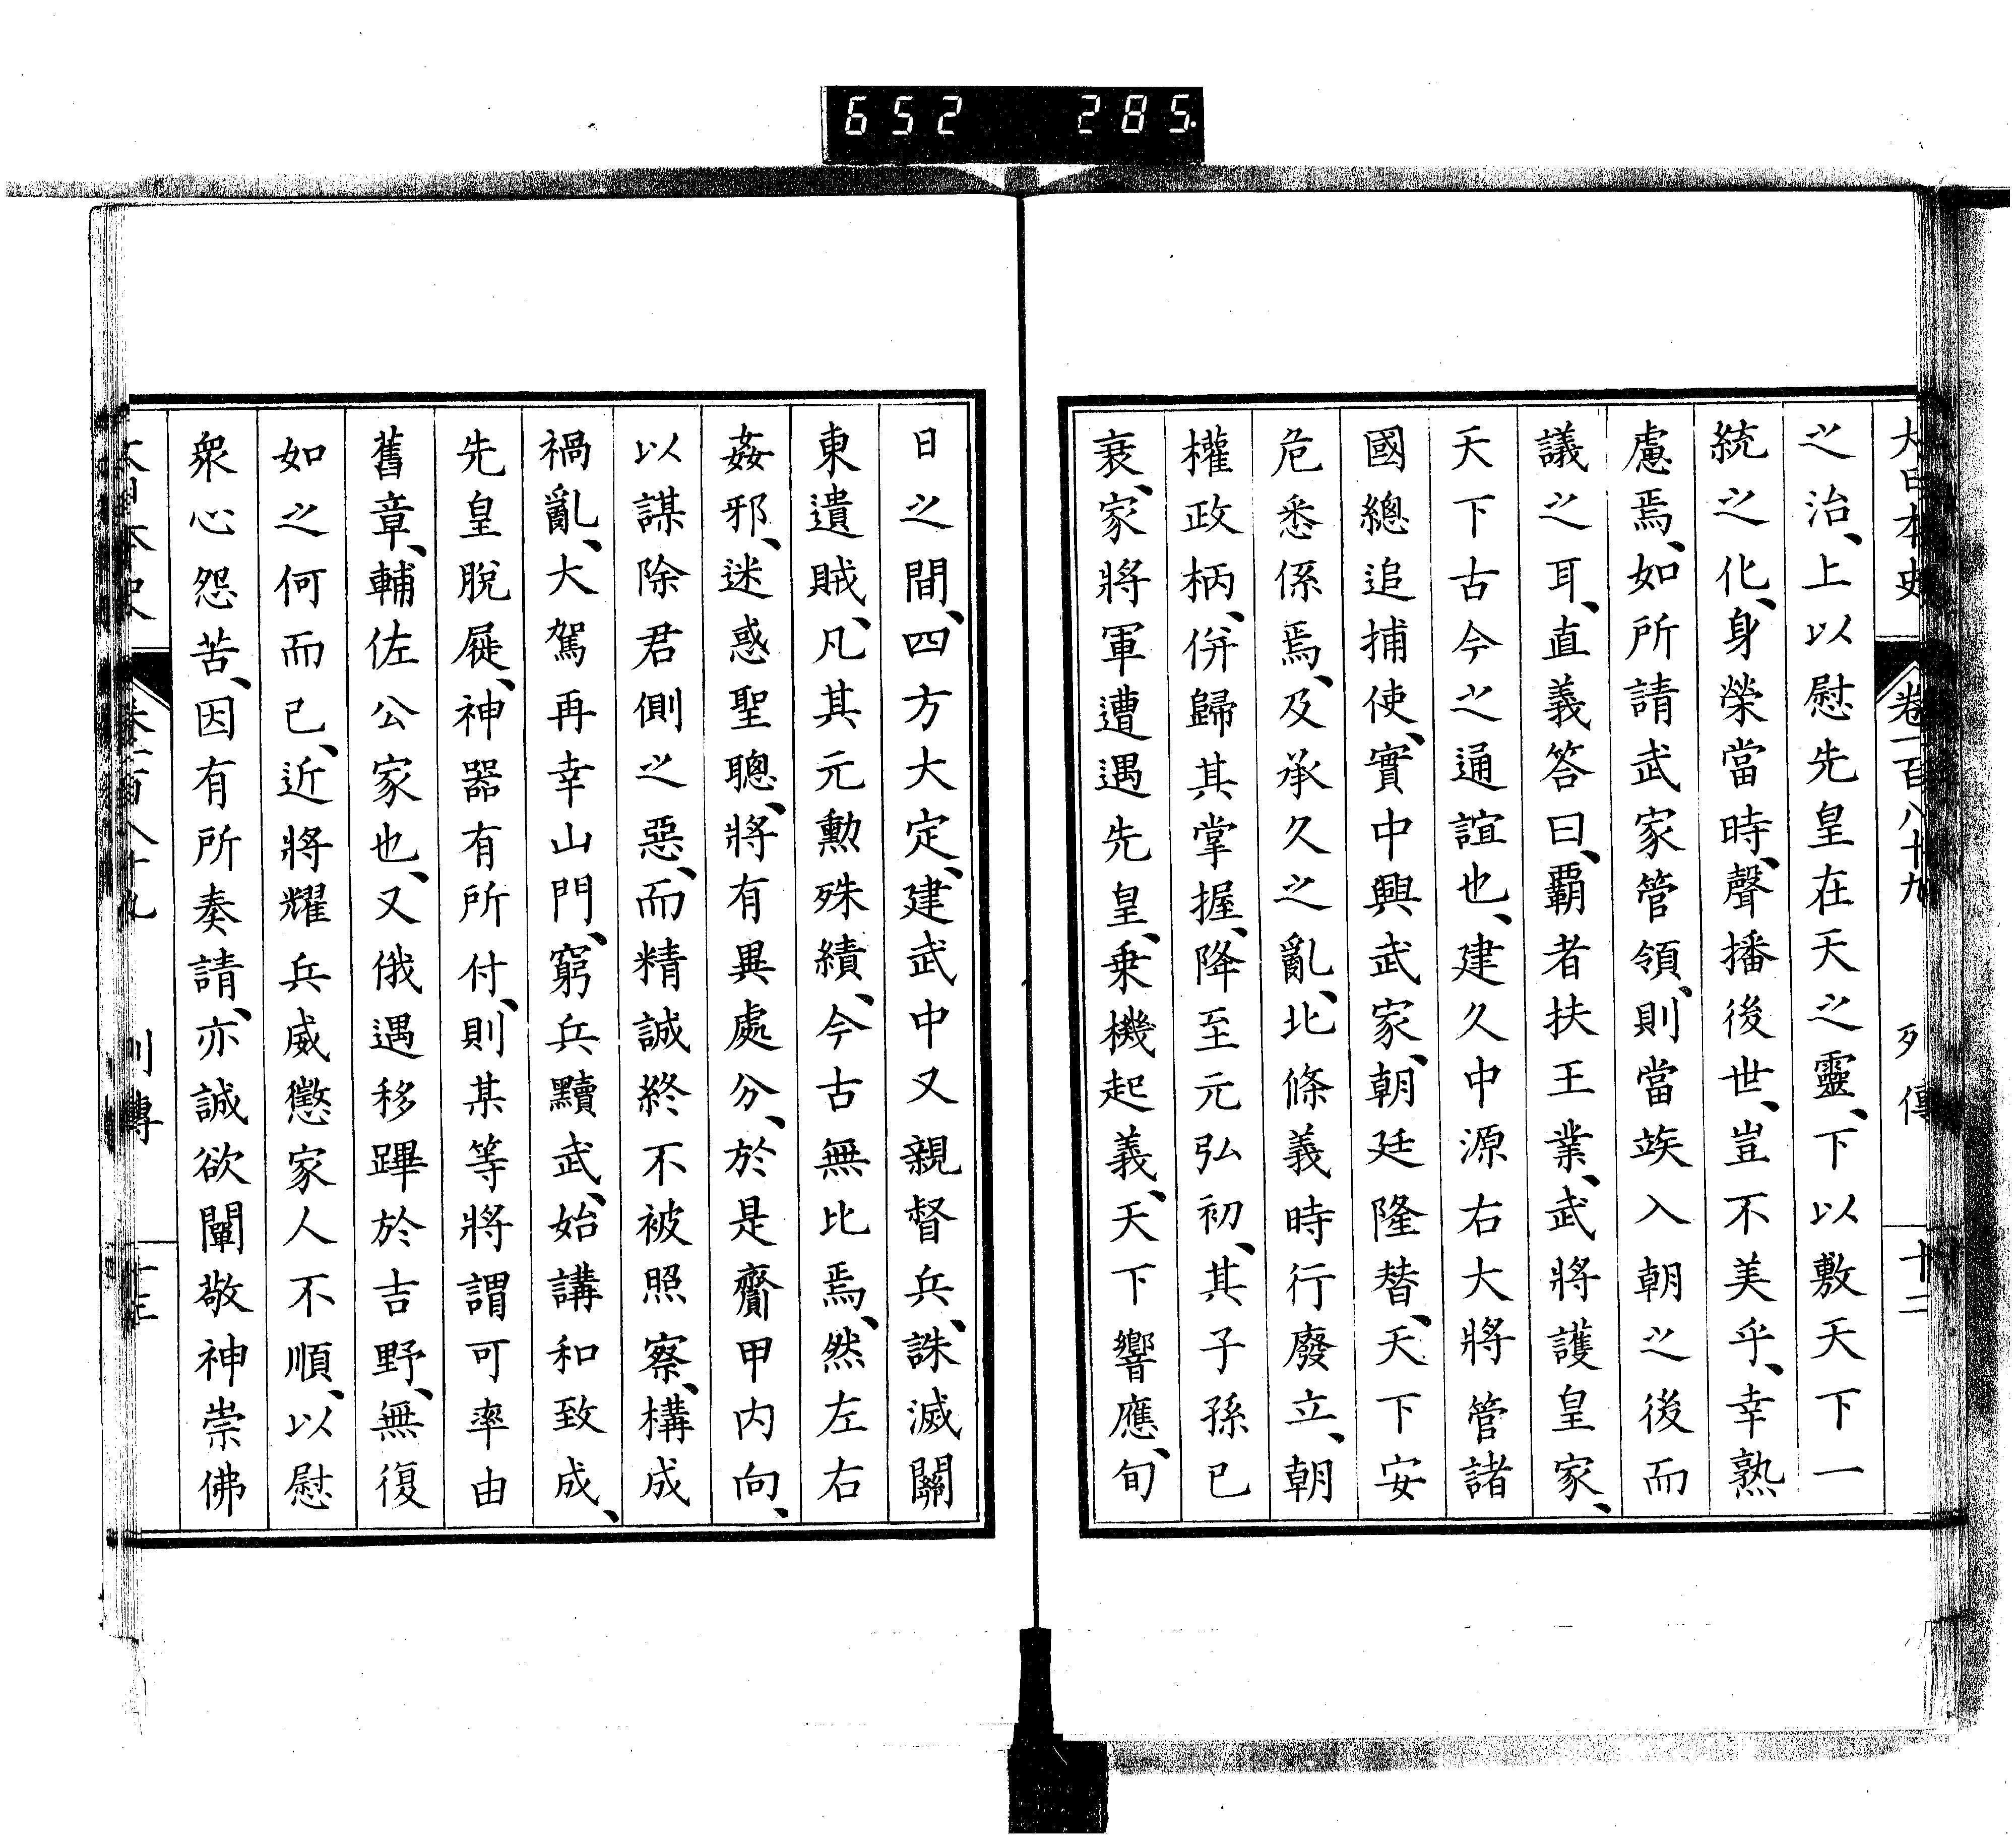 652 285
大日本史 卷一百八十九 列傳 十二
之治、上以慰先皇在天之靈、下以敷天下一
統之化、身榮當時、聲播後世、豈不美乎、幸熟
慮焉、如所請武家管領、則當竢入朝之後而
議之耳、直義答曰、霸者扶王業、武將護皇家、
天下古今之通誼也、建久中源右大將管諸
國總追捕使、實中興武家、朝廷隆替、天下安
危悉係焉、及承久之亂、北條義時行廢立、朝
權政柄、併歸其掌握、降至元弘初、其子孫已
衰、家將軍遭遇先皇、乗機起義、天下響應、旬
日之間、四方大定、建武中又親督兵、誅滅關
東遺賊、凡其元勳殊績、今古無比焉、然左右
姦邪、迷惑聖聰、將有異處分、於是齎甲内向、
以謀除君側之惡、而精誠終不被照察、構成
禍亂、大駕再幸山門、窮兵黷武、始講和致成、
先皇脫屣、神器有所付、則某等將謂可率由
舊章、輔佐公家也、又俄遇移蹕於吉野、無復
如之何而已、近將耀兵威懲家人不順、以慰
衆心怨苦、因有所奏請、亦誠欲闡敬神崇佛
大日本史 卷一百八十九 列傳 十三